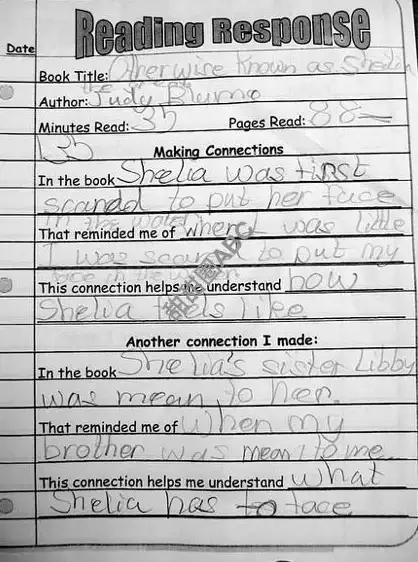 Reading Response
Date
Book Title: Otherwise Known as Sheila
the great
Author: Judy Blume
Minutes Read: 35 Pages Read: 88-
135
Making Connections
In the book Shelia was first
scared to put her face
in the water
That reminded me of when I was little
I was scared to put my
face in the water
This connection helps me understand how
Shelia feels like
Another connection I made:
In the book Shelia's sister Libby
was mean to her.
That reminded me of When my
brother was mean to me
This connection helps me understand what
Shelia has to face